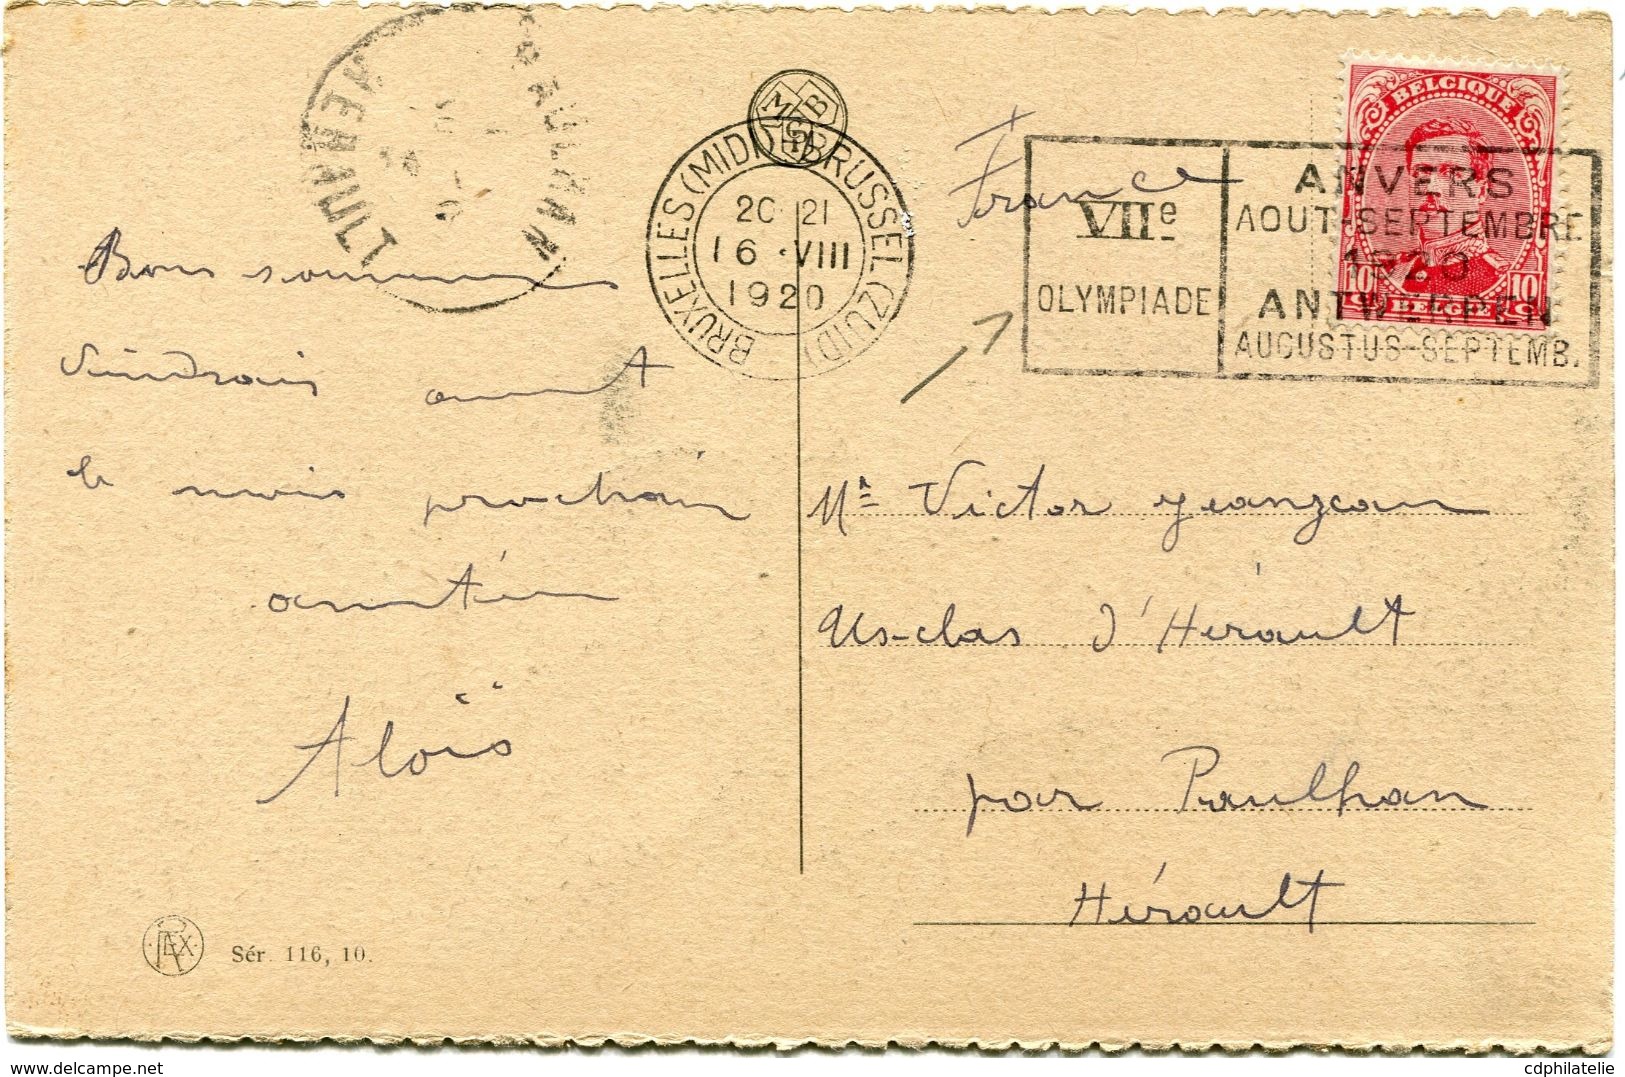 PAULHAN
HERAULT
MGB
BRUXELLES (MIDI) BRUSSEL (ZUID)
20 21
16 · VIII
1920
France
VIIe
OLYMPIADE
ANVERS
AOUT-SEPTEMBRE
1920
ANTWERPEN
AUGUSTUS-SEPTEMB.
BELGIQUE
10 10
C BELGIË C
Bons
viendrais avant
le mois prochain
Aloïs
Mr Victor Jeanjean
Us-clas d'Hérault
par Paulhan
Hérault
Sér. 116, 10.
delcampe.net
cdphilatelie